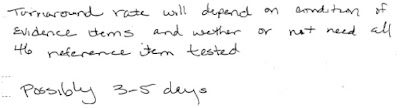 Turnaround rate will depend on condition of
Evidence items and wether or not need all
46 reference item tested
Possibly 3-5 days